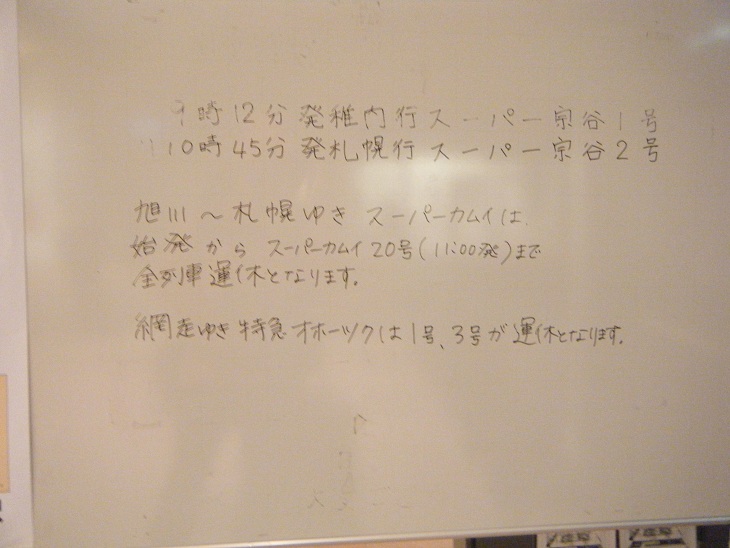 9時12分発稚内行スーパー宗谷1号
10時45分発札幌行スーパー宗谷2号
旭川～札幌ゆき スーパーカムイは、
始発から スーパーカムイ20号(11:00発)まで
全列車運休となります。
網走ゆき特急オホーツクは1号、3号が運休となります。